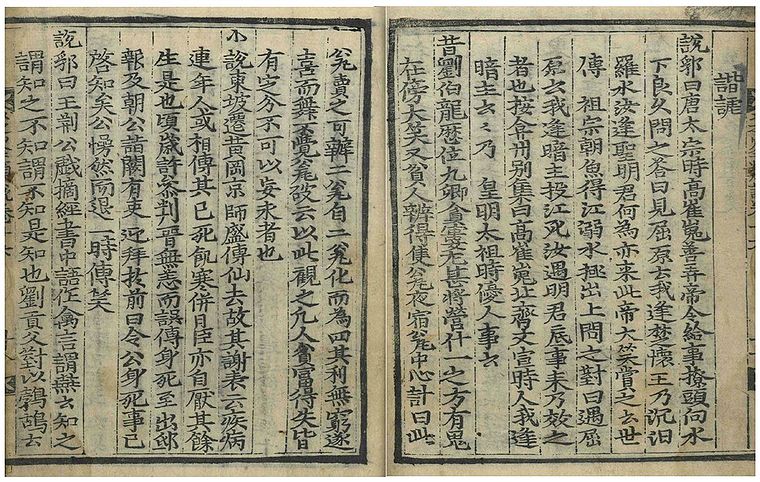 諧謔
說郛曰唐太宗時高崔嵬善弄帝令給事捺頭向水
下良久問之答曰見屈原云我逢楚懷王乃沉汨
羅水汝逢聖明君何爲亦來此帝大笑賞之云世
傳 祖宗朝魚得江溺水極出上問之對曰遇屈
原云我逢暗主投江死汝遇明君底事來乃效之
者也按弇州別集曰高崔嵬北齊文宣時人我逢
暗主云云乃 皇明太祖時優人事云
昔劉伯龍歷位九卿貧窶尤甚將營什一之方有鬼
在傍大笑又貧人辦得隻瓮夜宿瓮中心計曰此
瓮賣之可辦二瓮自二瓮化而爲四其利無窮遂
喜而舞不覺瓮破云以此觀之凡人貧富得失皆
有定分不可以妄求者也
小說東坡遷黃岡京師盛傳仙去故其謝表云疾病
連年人或相傳其已死飢寒併日臣亦自厭其餘
生是也頃歲許參判晉無恙而誤傳身死至出邸
報及朝公詣闕有吏迎拜於前曰令公身死事已
啓知矣公愕然而退一時傳笑
說郛曰王荊公戲摘經書中語作禽言謂燕云知之
謂知之不知謂不知是知也劉貢父對以鷓鴣云